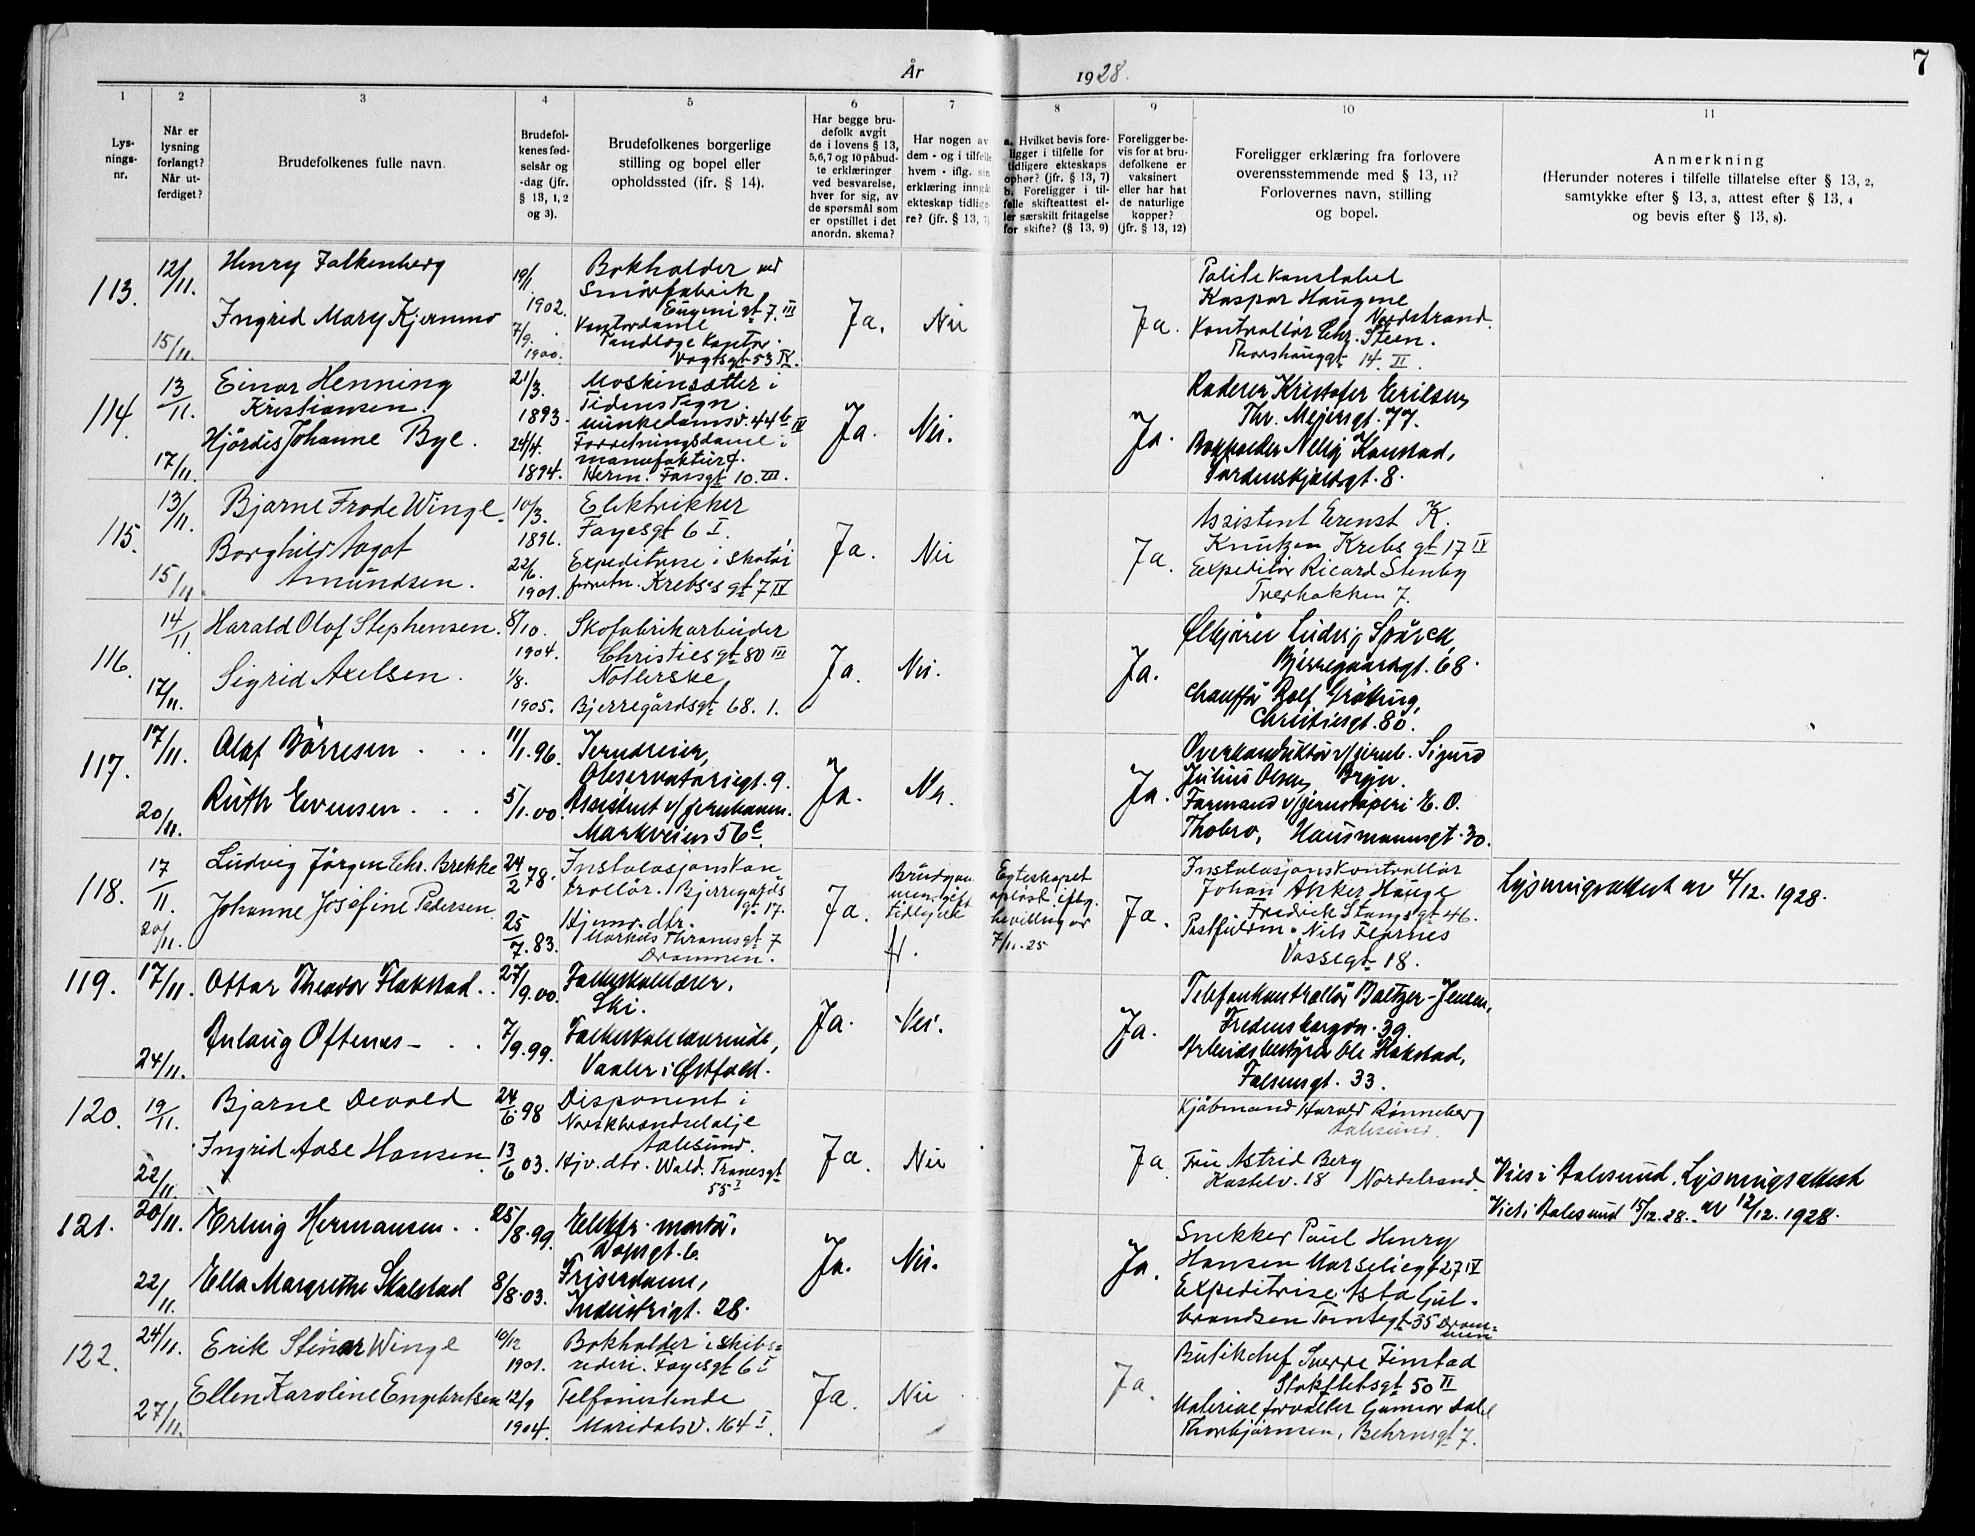 År
1928.
7
1
2
3
4
5
6
7
8
9
10
11
Lys-
nings-
nr.
Når er
lysning
forlangt?
Når ut-
ferdiget?
Brudefolkenes fulle navn.
Brudefol-
kenes fød-
selsår og
-dag (jfr.
§ 13, 1, 2
og 3).
Brudefolkenes borgerlige
stilling og bopel eller
opholdssted (ifr. § 14).
Har begge bru-
defolk avgit
de i lovens § 13,
5,6,7 og 10 påbud-
te erklæringer
ved besvarelse,
hver for sig, av
de spørsmål som
er opstillet i det
anordn. skema?
Har nogen av
dem - og i tilfelle
hvem - iflg. sin
erklæring inngå
ekteskap tidlige-
re? (jfr. § 13, 7)
a. Hvilket bevis fore-
ligger i tilfelle for
tidligere ekteskaps
ophør? (jfr. § 13, 7)
b. Foreligger i til-
felle skifteattest el-
ler særskilt fritagelse
for skifte? (§ 13, 9)
Foreligger be-
vis for at bru-
defolkene er
vaksinert
eller har hat
de naturlige
kopper?
(jfr. § 13, 12)
Foreligger erklæring fra forlovere
overensstemmende med § 13, 11?
Forlovernes navn, stilling
og bopel.
Anmerkning
(Herunder noteres i tilfelle tillatelse efter § 13, 2,
samtykke efter § 13, 3, attest efter § 13, 4
og bevis efter § 13, 8).
113.
12/11.
15/11.
Henry Falkenberg
Ingrid Mary Kjernmo
19/1
1902.
7/9.
1900.
Bokholder ved
Smörfabrik
Eugenigt 7. III
Kontordame
Tandlæge Kontor.
Vogtsgt 53 IV.
Ja.
Nei
Ja.
Politikonstabel
Kaspar Haugene
Nordstrand.
Kontrollör Chr. Steen.
Thorshauggt 14. II
114.
13/11.
17/11.
Einar Henning
Kristiansen.
Hjördis Johanne Bye.
21/3.
1893.
24/4.
1894.
Maskinsætter i
Tidens Tegn.
Munkedamsv. 44b IV
Forretningsdame i
manufakturf.
Herm. Fossgt 10. III.
Ja.
Nei.
Ja.
Raderer Kristofer Eriksen,
Thr. Meyersgt. 77.
Bokholder Nelly Konstad,
Tordenskjoldsgt. 8.
115.
13/11.
15/11.
Bjarne Frode Winge.
Borghild Aagot
Amundsen.
10/3.
1896.
22/6.
1901.
Elektrikker
Fayesgt 6 I.
Expeditrise i Skotöi
forretn. Krebs's gt 7 IV
Ja.
Nei
Ja.
Assistent Ernst K.
Knutzen Krebs gt 17 IV
Expeditör Ricard Stenby
Tverbakken 7.
116.
14/11
17/11.
Harald Olaf Stephensen.
Sigrid Axelsen.
8/10.
1904.
1/8.
1905.
Skofabrikarbeider
Christies gt 80 III
Notlerske
Bjerregårdsgt 68. 1.
Ja.
Nei.
Ja.
Ølkjører Ludvig Spörck,
Bjerregaardsgt. 68.
Chauffør Rolf Gröting,
Christiesgt. 80.
117.
17/11.
20/11.
Olaf Börresen . . .
Ruth Evensen . . .
11/1.96.
5/1.00.
Jerndreier,
Observatoriegt. 9.
Assistent v/ jernbanen.
Markveien 56 c.
Ja.
Nei.
Ja.
Overkonduktör v/jernb. Sigurd
Julius Olsen, Bryn.
Formand v/jernstöperi E. O.
Thobro, Hausmannsgt. 30.
118.
17/11.
20/11.
Ludvig Jörgen Chr. Brekke
Johanne Josefine Pedersen.
24/2 78.
25/7.83.
Instalasjonskon
trollör. Bjerregårds
gt 17.
Hjemv. dtr.
Markus Thranesgt 7
Drammen.
Ja.
Brudgom
men gift
tidligere
Egteskapet
opløst iflg.
bevilling av
7/11.25
Ja.
Instalasjonskontrollör
Johan Anker Hauge
Fredrik Stangs gt 46.
Postfuldm. Nils Flornes
Vossegt 18.
Lysningsattest av 4/12. 1928.
119.
17/11.
24/11.
Ottar Theodor Flakstad . .
Aulaug Oftenæs - . .
27/9.00.
7/9.99.
Folkeskolelærer,
Ski.
Folkeskolelærerinde,
Vaaler i Østfold.
Ja.
Nei.
Ja.
Telefonkontrollör Baltzer-Jensen,
Fredensborgvn. 39.
Arbeidsbestyrer Ole Flakstad,
Falsensgt. 33.
120.
19/11.
22/11
Bjarne Devold
Ingrid Aase Hansen.
24/6.98
13/6 03.
Disponent i
Norsk brændselolje
Aalesund.
Hjv. dtr. Wald. Tranesgt
55 I
Ja.
Nei
Ja
Kjöbmand Harald Rönneberg
Aalesund.
Fru Astrid Berg
Kastelv. 18 Nordstrand.
Vies i Aalesund. Lysningsattest
Viet i Aalesund 15/12.28. av 12/12. 1928.
121.
20/11.
22/11.
Erling Hermansen . .
Ella Margrethe Skolstad
25/8.99.
8/8.03.
Elektr. montör.
Wopsgt. 6
Friserdame,
Industrigt. 28.
Ja.
Nei.
Ja.
Snekker Paul Henry
Hansen Marseliegt 27 IV
Expeditrise Asta Gul-
brandsen Tomtegt 35 Dram-
men
122.
24/11.
27/11.
Erik Steinar Winge
Ellen Karoline Engebretsen
10/12
1901.
12/9
1904.
Bokholder i skibs-
rederi. Fayesgt 6 I
Telfonistinde
Maridalsv. 164 I.
Ja.
Nei
Ja.
Butikchef Sverre Fimstad
Stokfletsgt 50 II
Materialforvalter Gunnar Dahl
Thorbjörnsen, Behrnsgt 7.